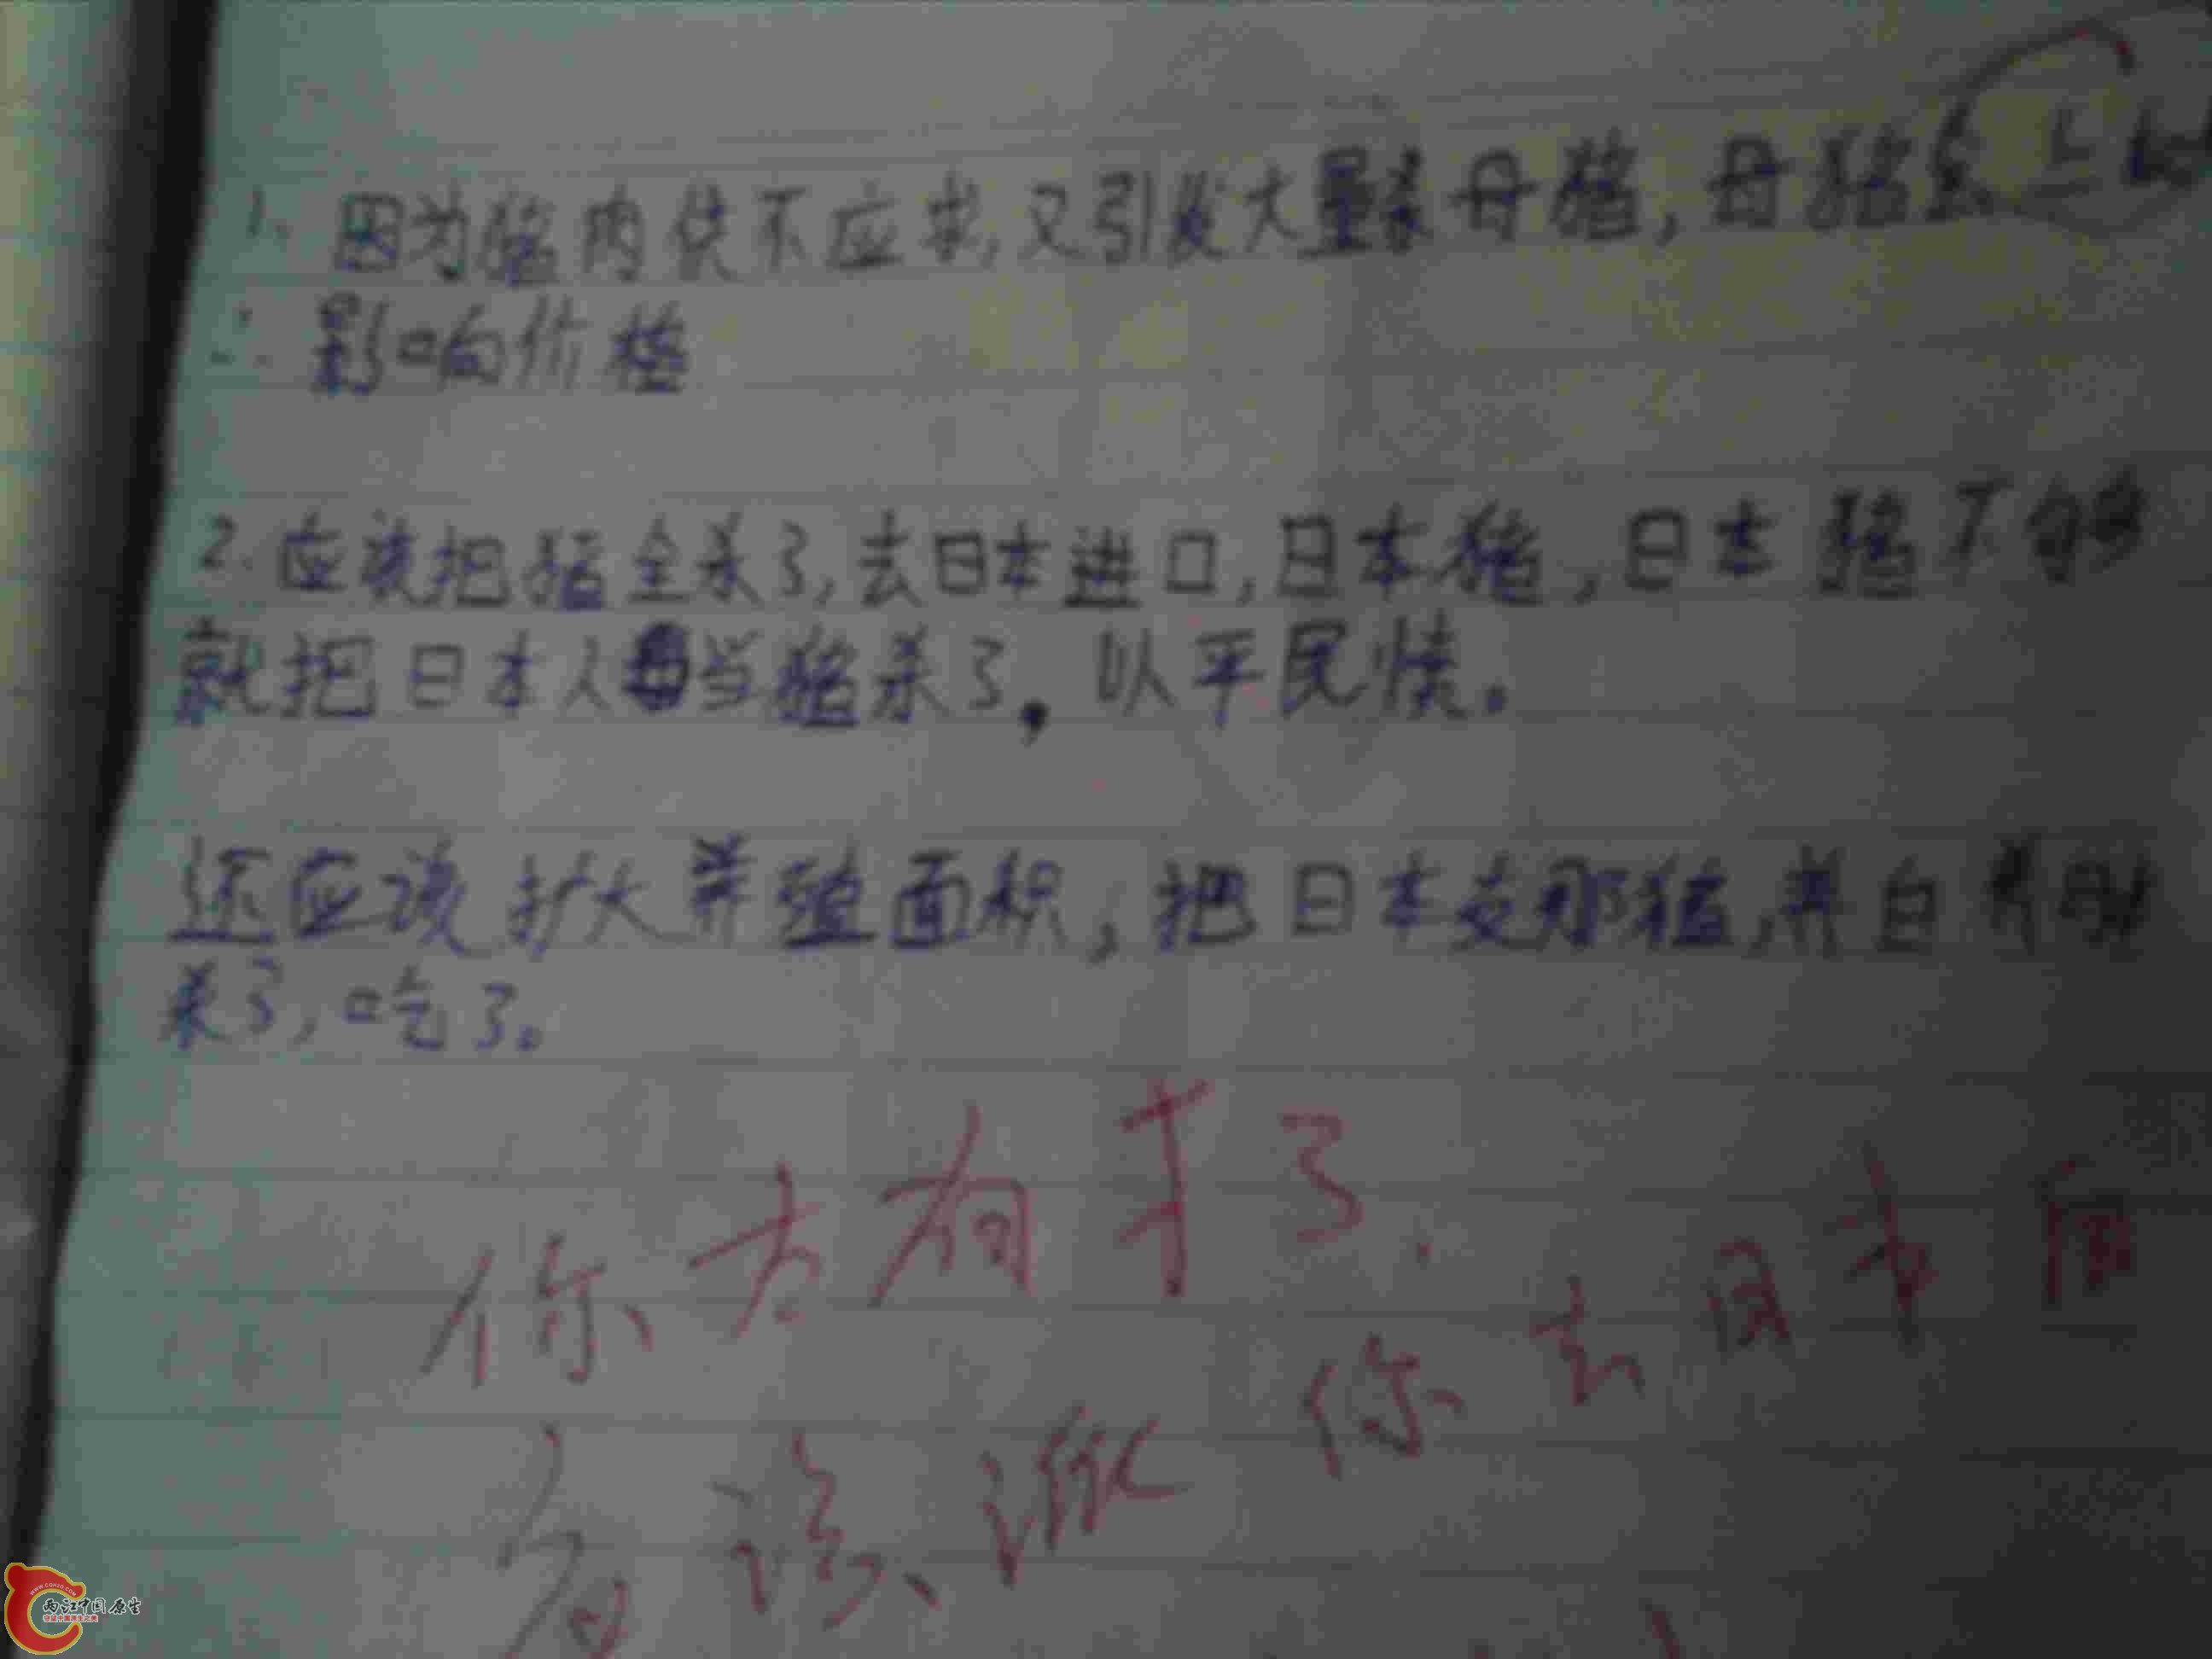 1. 因为猪肉供不应求,又引发大量杀母猪,母猪
影响价格
2. 应该把猪全杀了,去日本进口,日本猪,日本猪不够
就把日本人当猪杀了,以平民愤。
还应该扩大养殖面积,把日本支那猪,养白养
杀了,吃了。
你太有才了.
你去日本
应该派
WWW.CQKZO.COM
两江中国原生